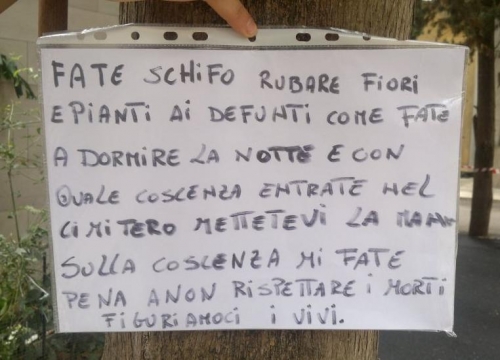 FATE SCHIFO RUBARE FIORI
E PIANTI AI DEFUNTI COME FATE
A DORMIRE LA NOTTE E CON
QUALE COSCENZA ENTRATE NEL
CIMITERO METTETEVI LA MANO
SULLA COSCENZA MI FATE
PENA A NON RISPETTARE I MORTI
FIGURIAMOCI I VIVI.